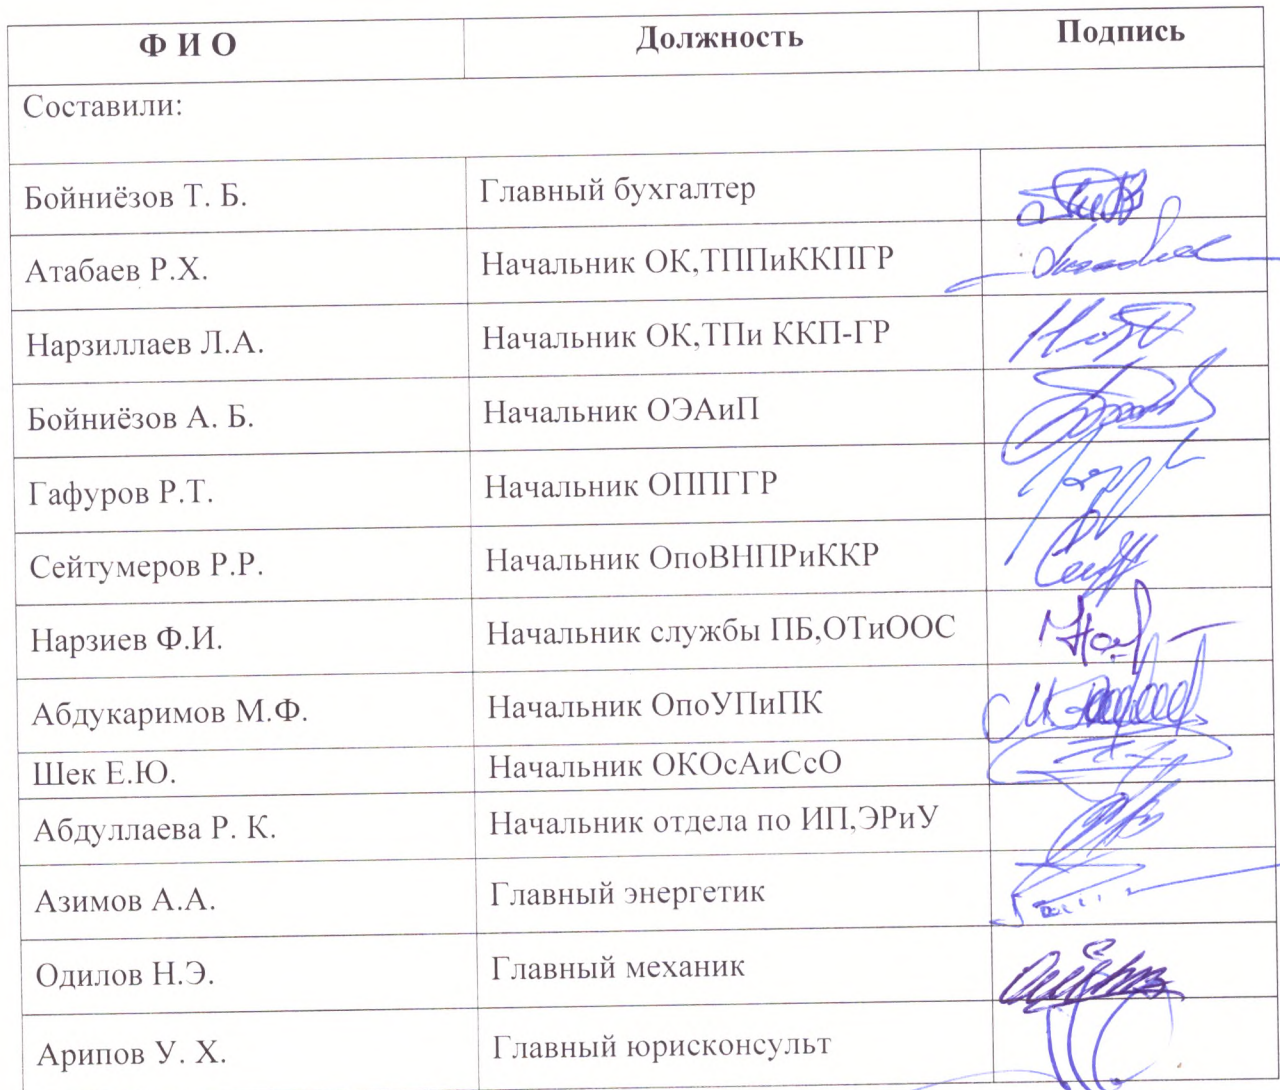 Ф И О Должность Подпись
Составили:
Бойниёзов Т. Б. Главный бухгалтер
Атабаев Р.Х. Начальник ОК,ТППиККПГР
Нарзиллаев Л.А. Начальник ОК,ТПи ККП-ГР
Бойниёзов А. Б. Начальник ОЭАиП
Гафуров Р.Т. Начальник ОППГГР
Сейтумеров Р.Р. Начальник ОпоВНПРиККР
Нарзиев Ф.И. Начальник службы ПБ,ОТиООС
Абдукаримов М.Ф. Начальник ОпоУПиПК
Шек Е.Ю. Начальник ОКОсАиСсО
Абдуллаева Р. К. Начальник отдела по ИП,ЭРиУ
Азимов А.А. Главный энергетик
Одилов Н.Э. Главный механик
Арипов У. Х. Главный юрисконсульт